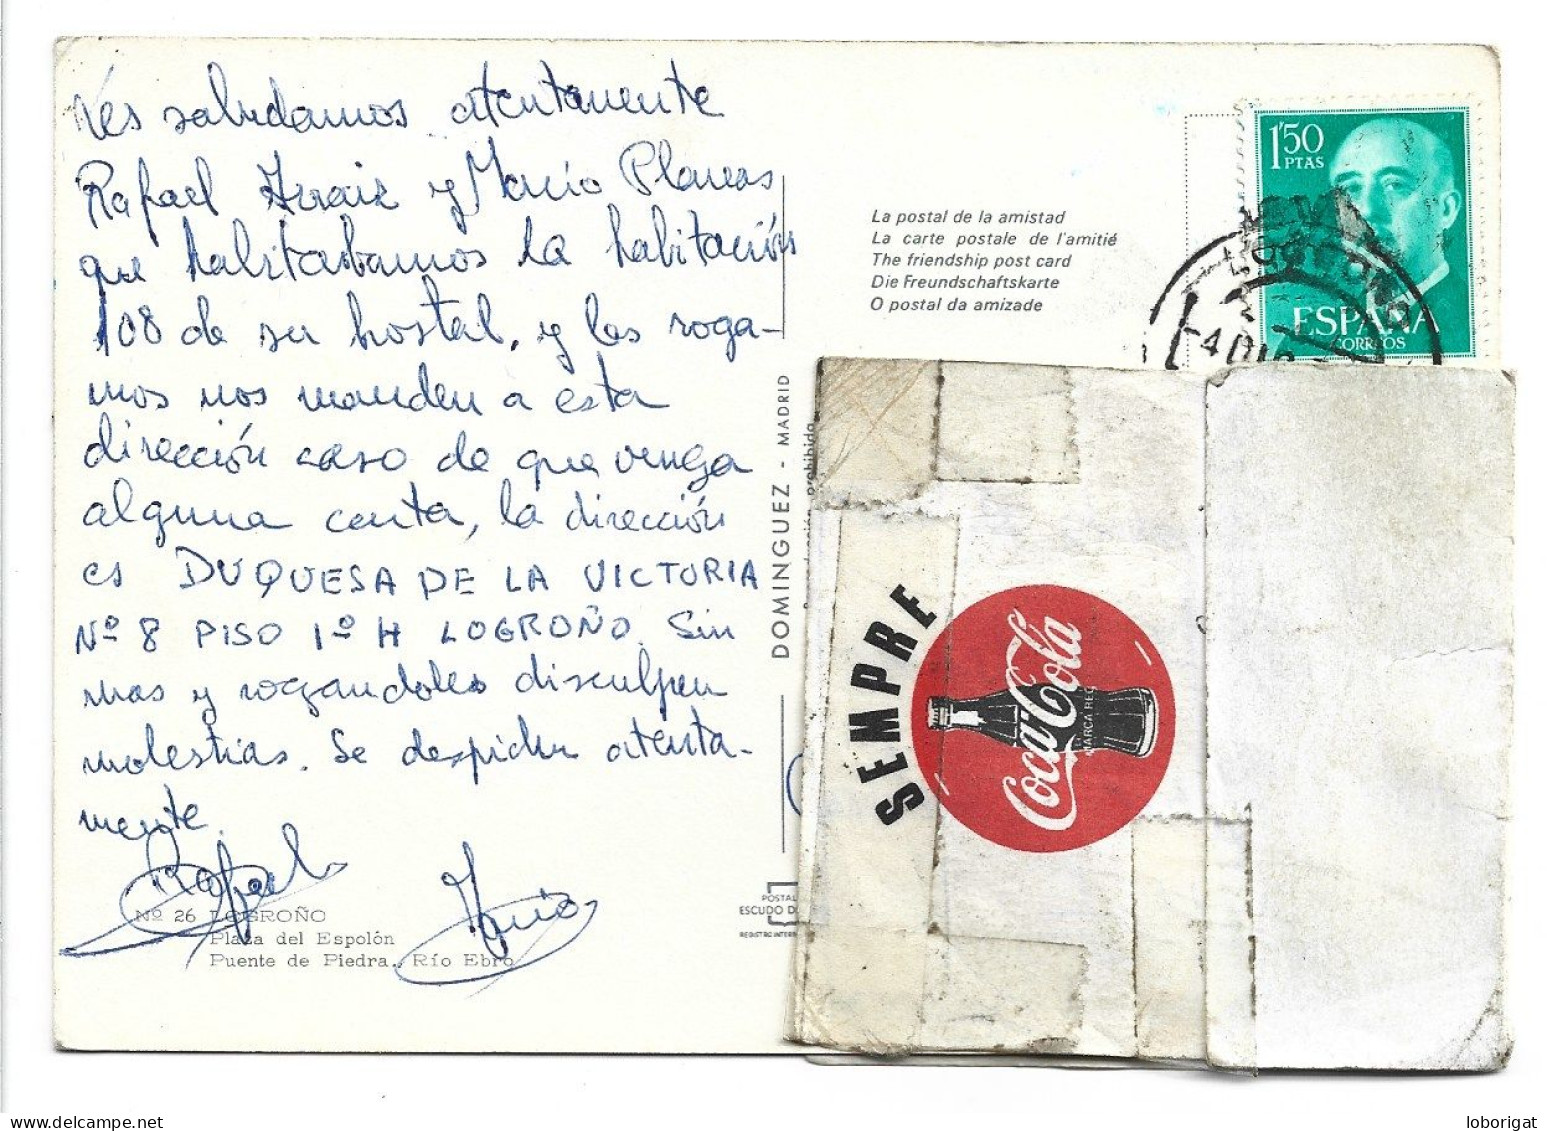 Les saludamos atentamente
Rafael Arraiz y Mario Planas
que habitabamos la habitación
108 de su hostal, y les roga-
mos nos manden a esta
dirección caso de que venga
alguna carta, la dirección
es DUQUESA DE LA VICTORIA
Nº 8 PISO 1º H LOGROÑO. Sin
mas y rogandoles disculpen
molestias. Se despiden atenta-
mente.
Rafael Mario
Nº 26 LOGROÑO
Plaza del Espolón
Puente de Piedra. Río Ebro
DOMINGUEZ - MADRID
prohibida
POSTAL
ESCUDO D
REGISTRO INTERN
La postal de la amistad
La carte postale de l'amitié
The friendship post card
Die Freundschaftskarte
O postal da amizade
1'50
PTAS
ESPAÑA
CORREOS
LOGROÑO
-4 DIC
SEMPRE
Coca-Cola
MARCA REG
loborigat